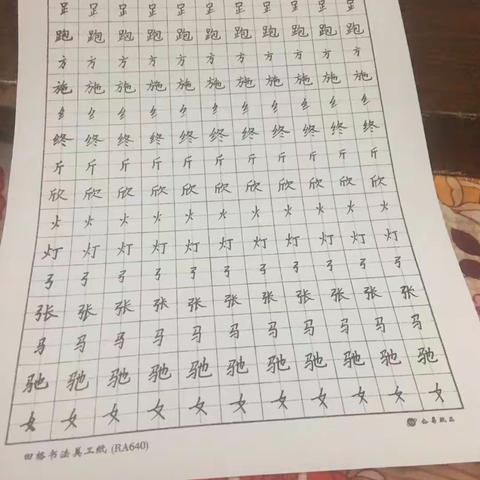 跑 跑 跑 跑 跑 跑 跑 跑 跑 跑 跑
方 方 方 方 方 方 方 方 方 方 方
施 施 施 施 施 施 施 施 施 施 施
纟 纟 纟 纟 纟 纟 纟 纟 纟 纟 纟
终 终 终 终 终 终 终 终 终 终 终
斤 斤 斤 斤 斤 斤 斤 斤 斤 斤 斤
欣 欣 欣 欣 欣 欣 欣 欣 欣 欣 欣
火 火 火 火 火 火 火 火 火 火 火
灯 灯 灯 灯 灯 灯 灯 灯 灯 灯 灯
弓 弓 弓 弓 弓 弓 弓 弓 弓 弓 弓
张 张 张 张 张 张 张 张 张 张 张
马 马 马 马 马 马 马 马 马 马 马
驰 驰 驰 驰 驰 驰 驰 驰 驰 驰 驰
女 女 女 女 女 女 女 女 女 女 女
田格书法美工纸 (RA640)